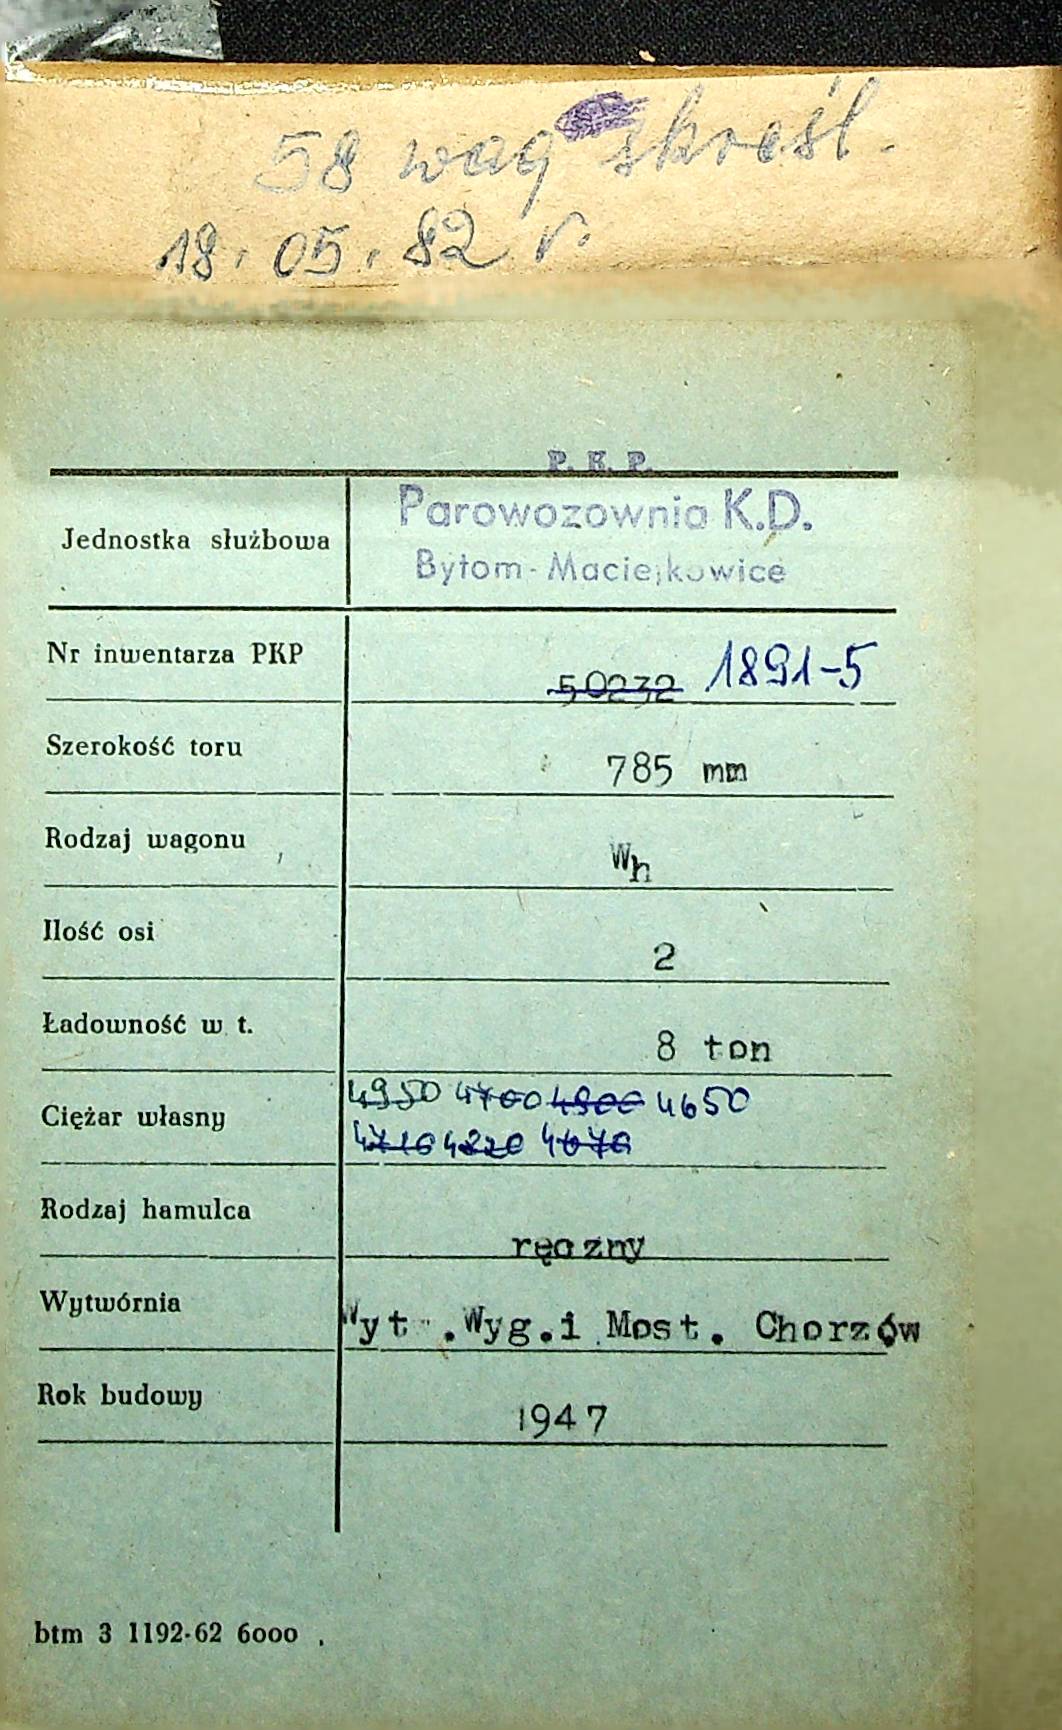 58 wag skreśl.
18.05.82 r.
P. K. P.
Jednostka służbowa
Parowozownia K.D.
Bytom-Maciejkowice
Nr inwentarza PKP 50232 1891-5
Szerokość toru 785 mm
Rodzaj wagonu Wh
Ilość osi 2
Ładowność w t. 8 ton
Ciężar własny
4950 4700 4900 4650
4710 4220 4670
Rodzaj hamulca ręczny
Wytwórnia Wyt .Wyg.i Most. Chorzów
Rok budowy 1947
btm 3 1192-62 6000